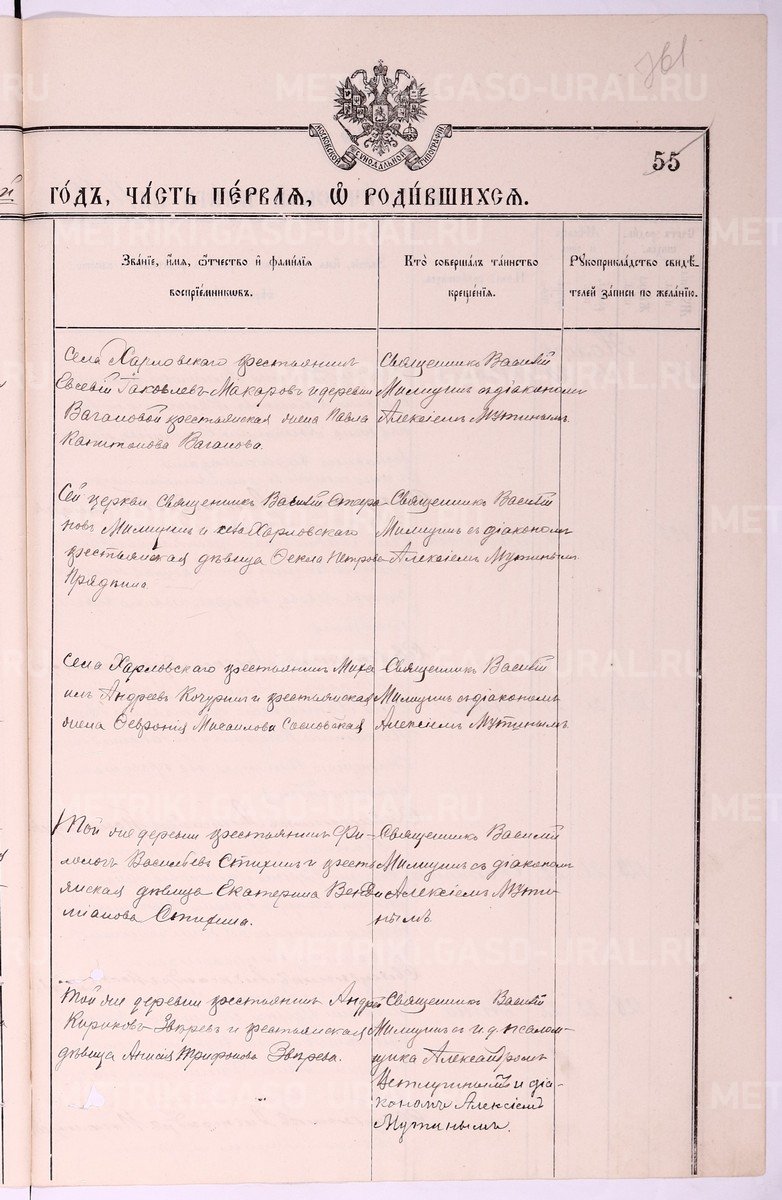 761
МОСКОВСКОЙ СѴНОДАЛЬНОЙ ТИПОГРАФІИ
55
ГО́ДЪ, ЧА́СТЬ ПЕ́РВАЯ, Ѡ҆ РОДИ́ВШИХСЯ.
Зва́нїе, и҆́мя, ѻ҆́тчество и҆ фами́лїя
воспрїе́мникѡвъ.
Кто̀ соверша́лъ та́инство
креще́нїя.
Рꙋкоприкла́дство свидѣ́-
телей за́писи по жела́нїю.
Села Харловскаго крестьянинъ
Евсевій Іаковлевъ Макаровъ и деревни
Вагановой крестьянская жена Павла
Капитонова Ваганова.
Священникъ Василій
Милицинъ съ діакономъ
Алексіемъ Мутинымъ.
Сей церкви Священникъ Василій Стефа-
новъ Милицинъ и села Харловскаго
крестьянская дѣвица Ѳекла Петрова
Прядеина
Священникъ Василій
Милицинъ съ діакономъ
Алексіемъ Мутинымъ.
Села Харловскаго крестьянинъ Миха
илъ Андреевъ Кочуринъ и крестьянская
жена Ѳевронія Михаилова Сосновская
Священникъ Василій
Милицинъ съ діакономъ
Алексіемъ Мутинымъ.
Той же деревни крестьянинъ Фи-
лологъ Васильевъ Стихинъ и кресть
янская дѣвица Екатерина
Стихина.
Священникъ Василій
Милицинъ съ діакономъ
Алексіемъ Мути-
нымъ.
Той же деревни крестьянинъ Андрей
Кириковъ Звѣревъ и крестьянская
дѣвица Анисія Трифонова Звѣрева.
Священникъ Василій
Милицинъ съ и. д. псалом-
щика Александромъ
и діа-
кономъ Алексіемъ
Мутинымъ.
METRIKI.GASO-URAL.RU